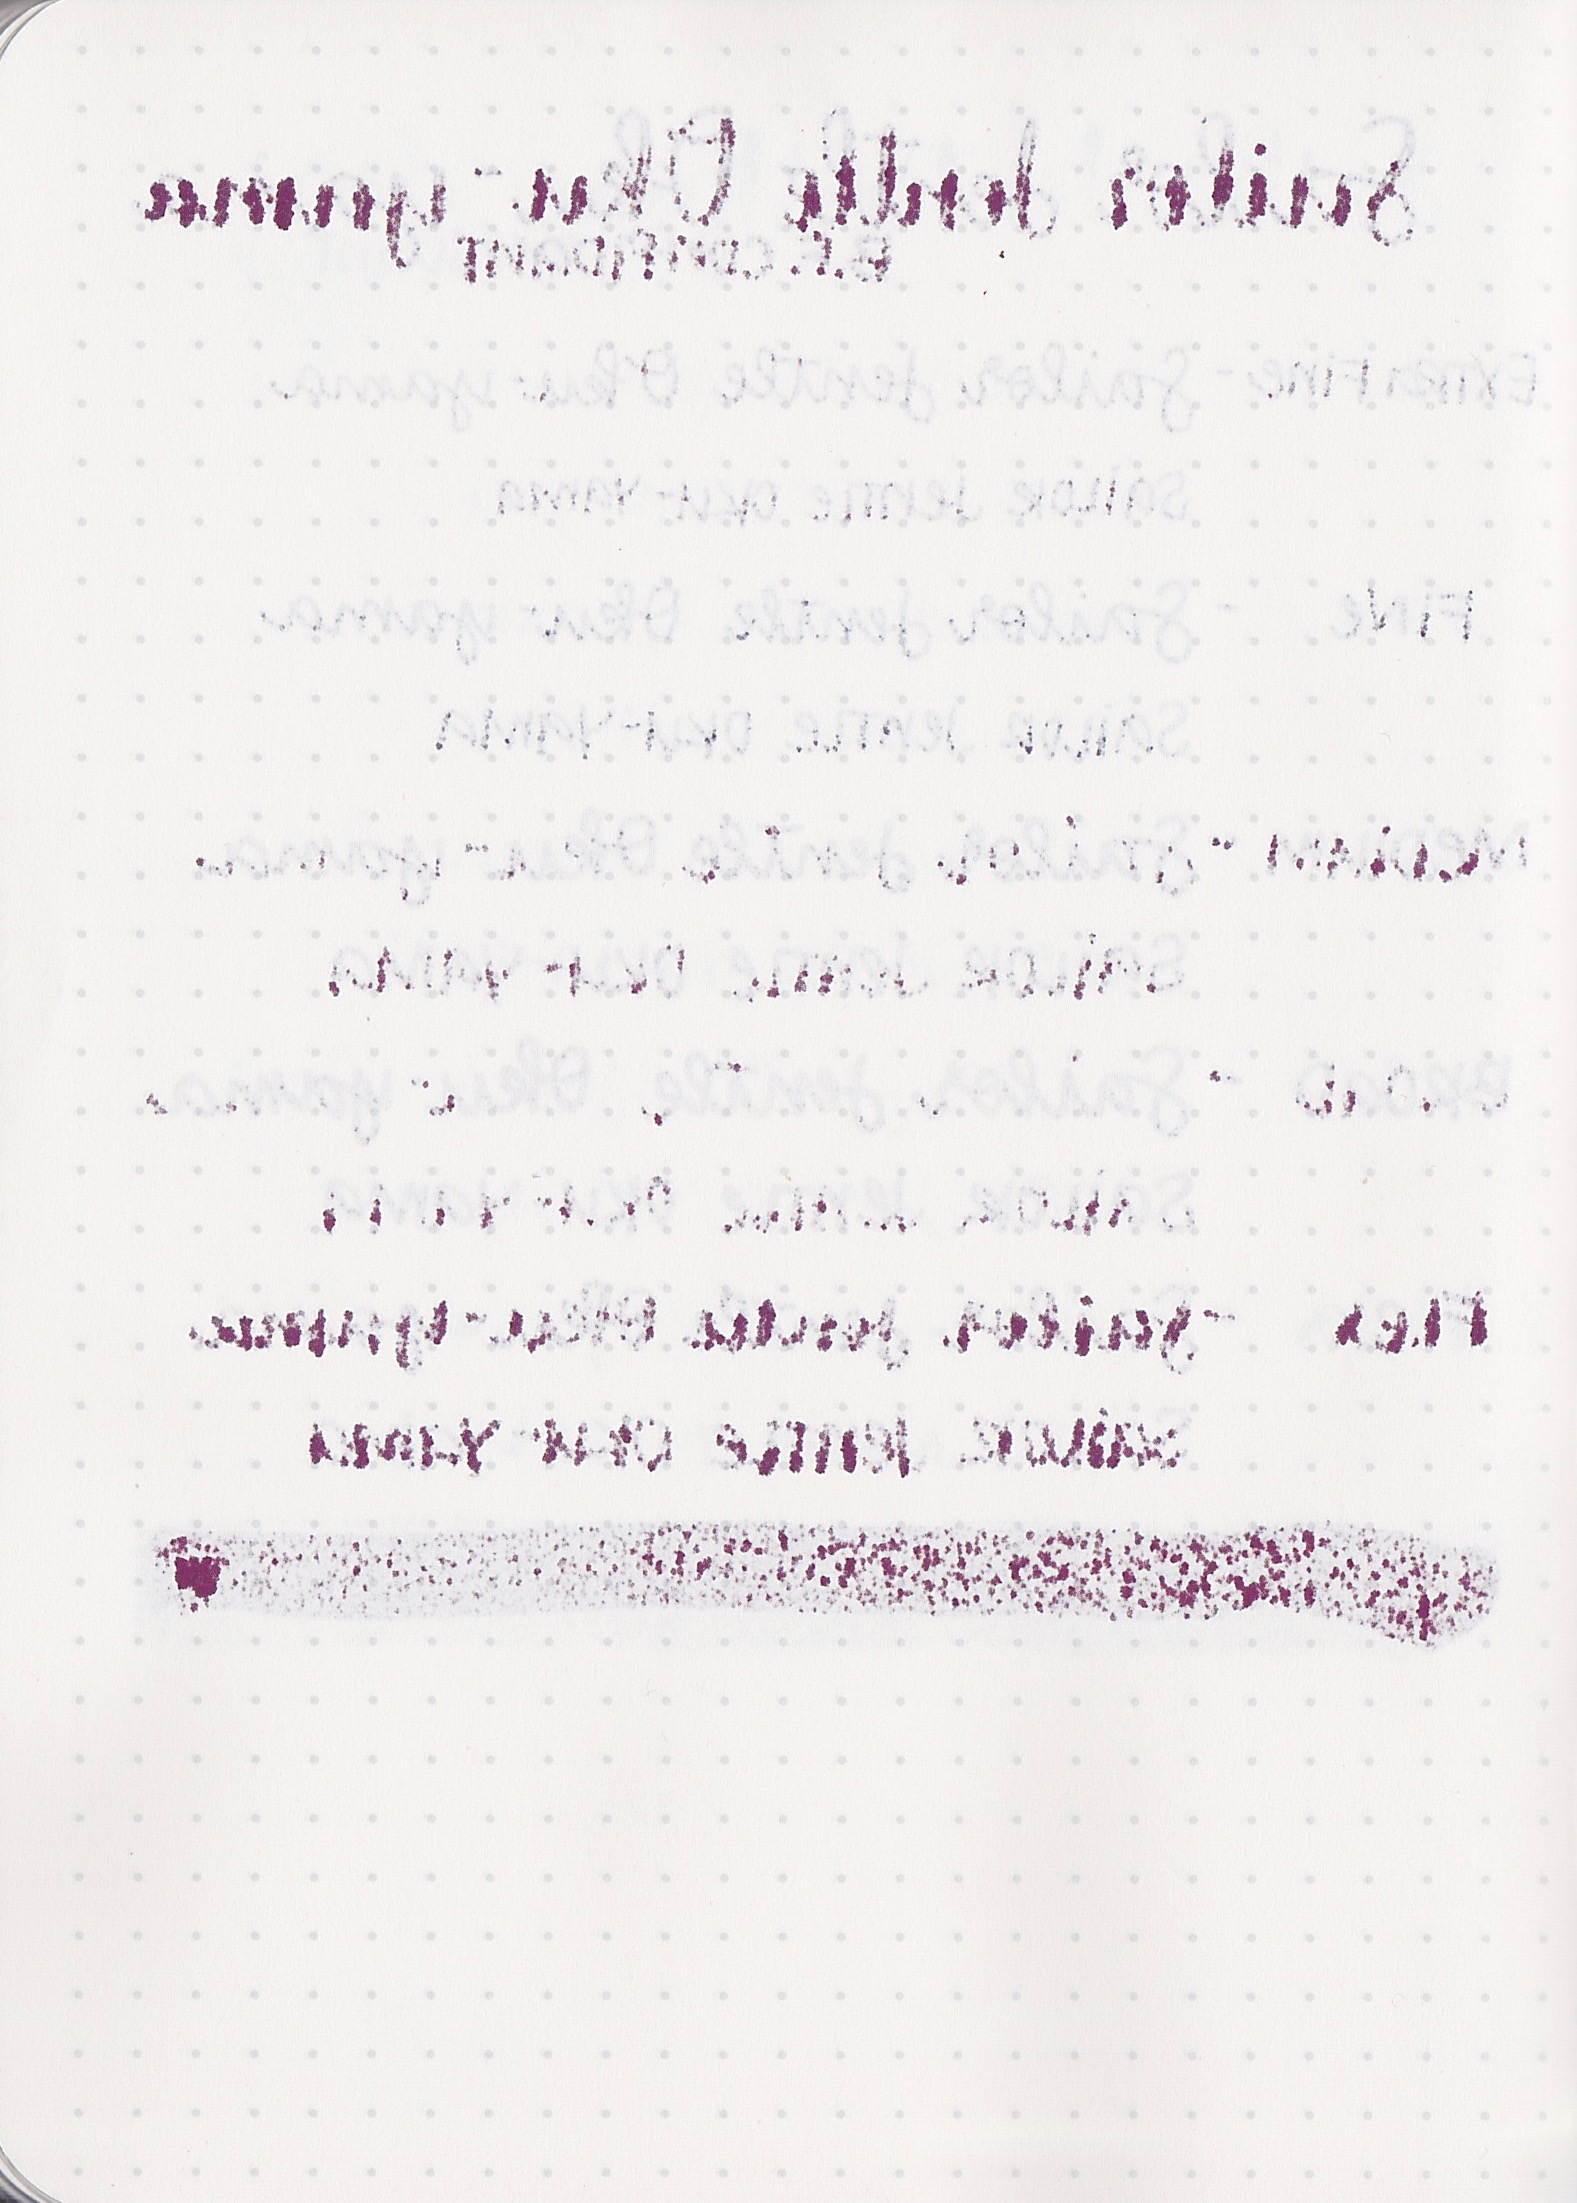 Sailor Jentle Oku-yama
B.F. CONFIDANT
EXTRA FINE - Sailor Jentle Oku-yama
SAILOR JENTLE OKU-YAMA
FINE - Sailor Jentle Oku-yama
SAILOR JENTLE OKU-YAMA
MEDIUM - Sailor Jentle Oku-yama
SAILOR JENTLE OKU-YAMA
BROAD - Sailor Jentle Oku-yama
SAILOR JENTLE OKU-YAMA
FLEX - Sailor Jentle Oku-yama
SAILOR JENTLE OKU-YAMA